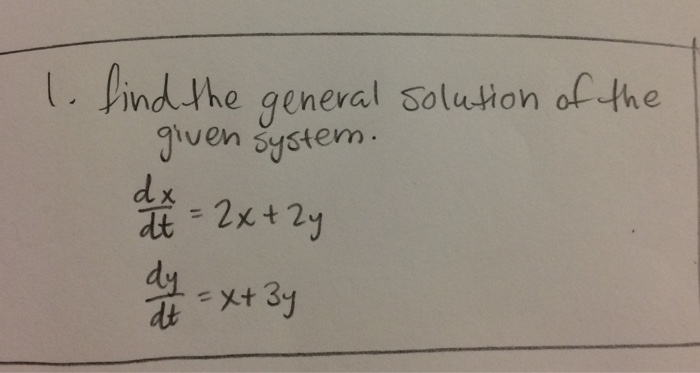 1. find the general solution of the
given system.
dx/dt = 2x + 2y
dy/dt = x + 3y